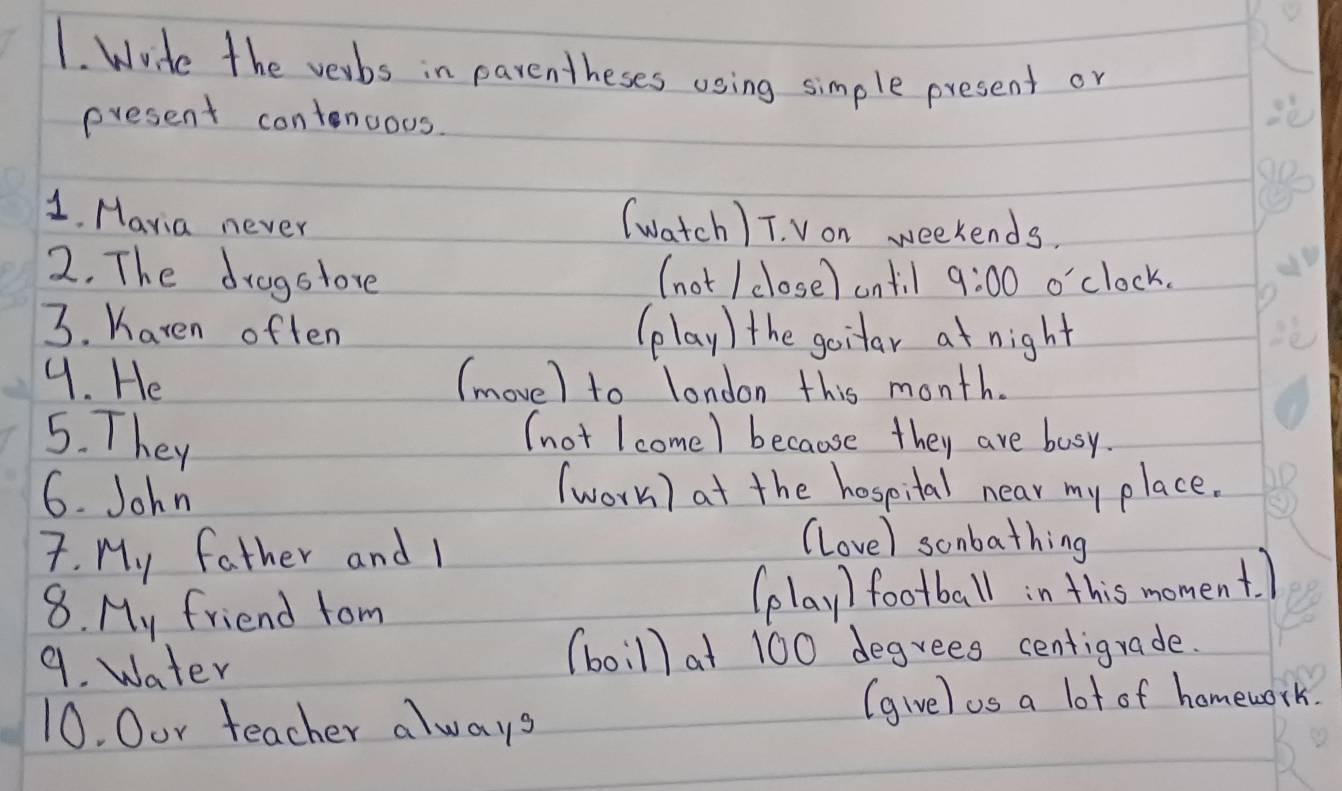 1. Write the verbs in parentheses using simple present or
present contenuous.
1. Maria never (watch) T.V on weekends.
2. The drugstore (not / close) until 9:00 o'clock.
3. Karen often (play) the guitar at night
4. He (move) to london this month.
5. They (not / come) because they are busy.
6. John (work) at the hospital near my place.
7. My father and I (Love) sunbathing
8. My friend tom (play) football in this moment.)
9. Water (boil) at 100 degrees centigrade.
10. Our teacher always (give) us a lot of homework.